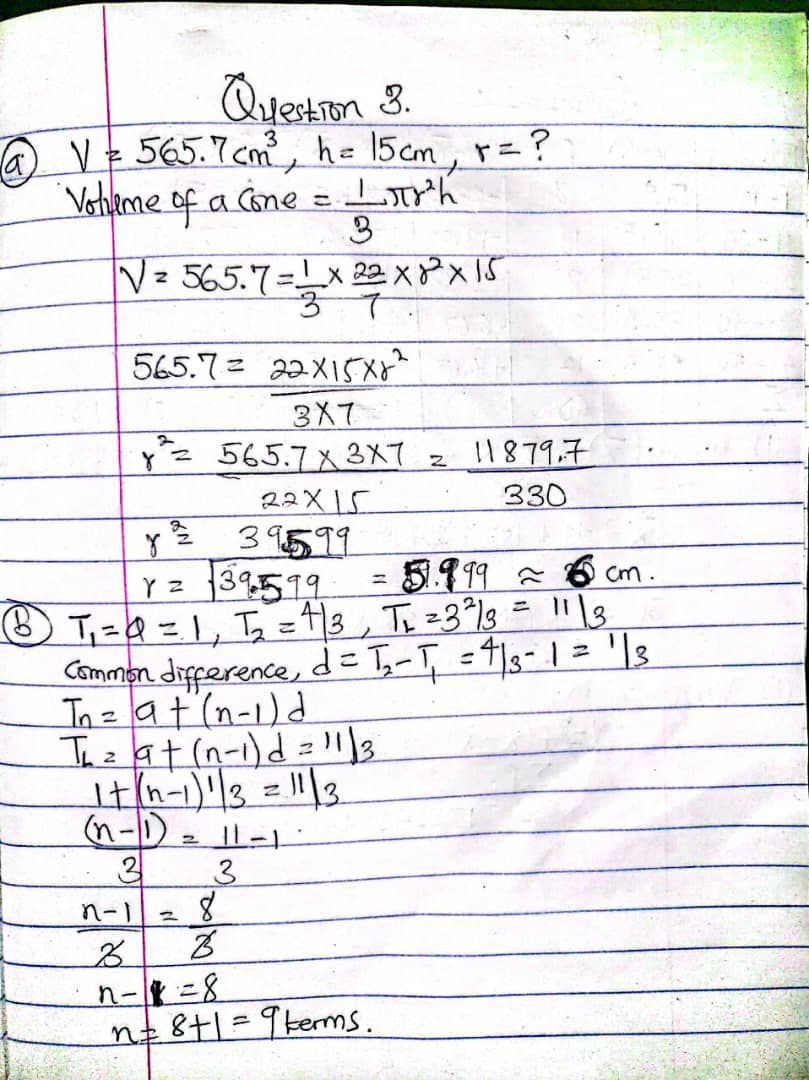 Question 3.
(a) V = 565.7cm³, h = 15cm, r = ?
Volume of a Cone = 1/3 πr²h
V = 565.7 = 1/3 × 22/7 × r² × 15
565.7 = 22×15×r² / 3×7
r² = 565.7×3×7 / 22×15 = 11879.7 / 330
r² = 39599
r = √39.599 = 5.999 ≈ 6 cm.
(B) T₁ = a = 1, T₂ = 4/3, T_L = 3 2/3 = 11/3
Common difference, d = T₂ - T₁ = 4/3 - 1 = 1/3
Tn = a + (n-1)d
T_L = a + (n-1)d = 11/3
1 + (n-1) 1/3 = 11/3
(n-1)/3 = 11/3 - 1
n-1/3 = 8/3
n-1 = 8
n = 8+1 = 9 terms.